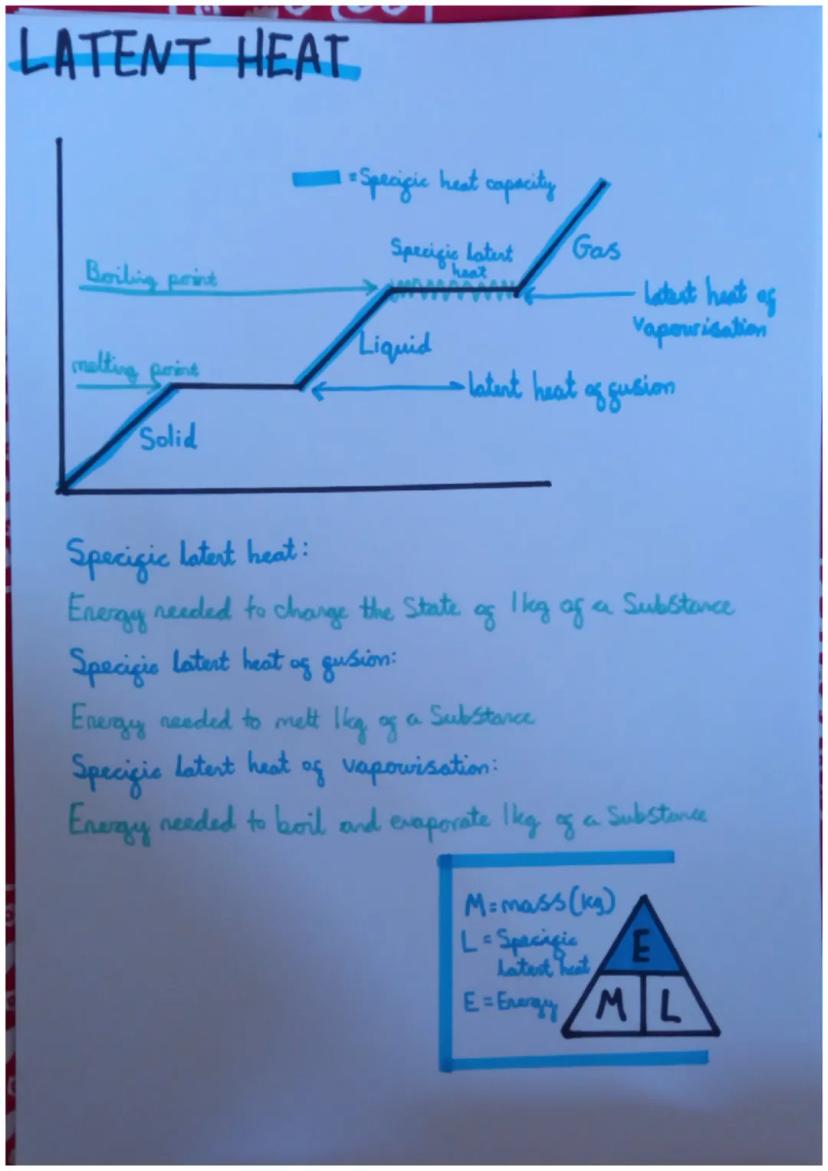 LATENT HEAT
= Specific heat capacity
Specific latent
heat
Gas
Boiling point
latent heat of
vapourisation
Liquid
melting point
latent heat of fusion
Solid
Specific latent heat:
Energy needed to change the State of 1kg of a Substance
Specific latent heat of fusion:
Energy needed to melt 1kg of a Substance
Specific latent heat of vapourisation:
Energy needed to boil and evaporate 1kg of a Substance
M = mass (kg)
L = Specific
latent heat
E = Energy
E
M L